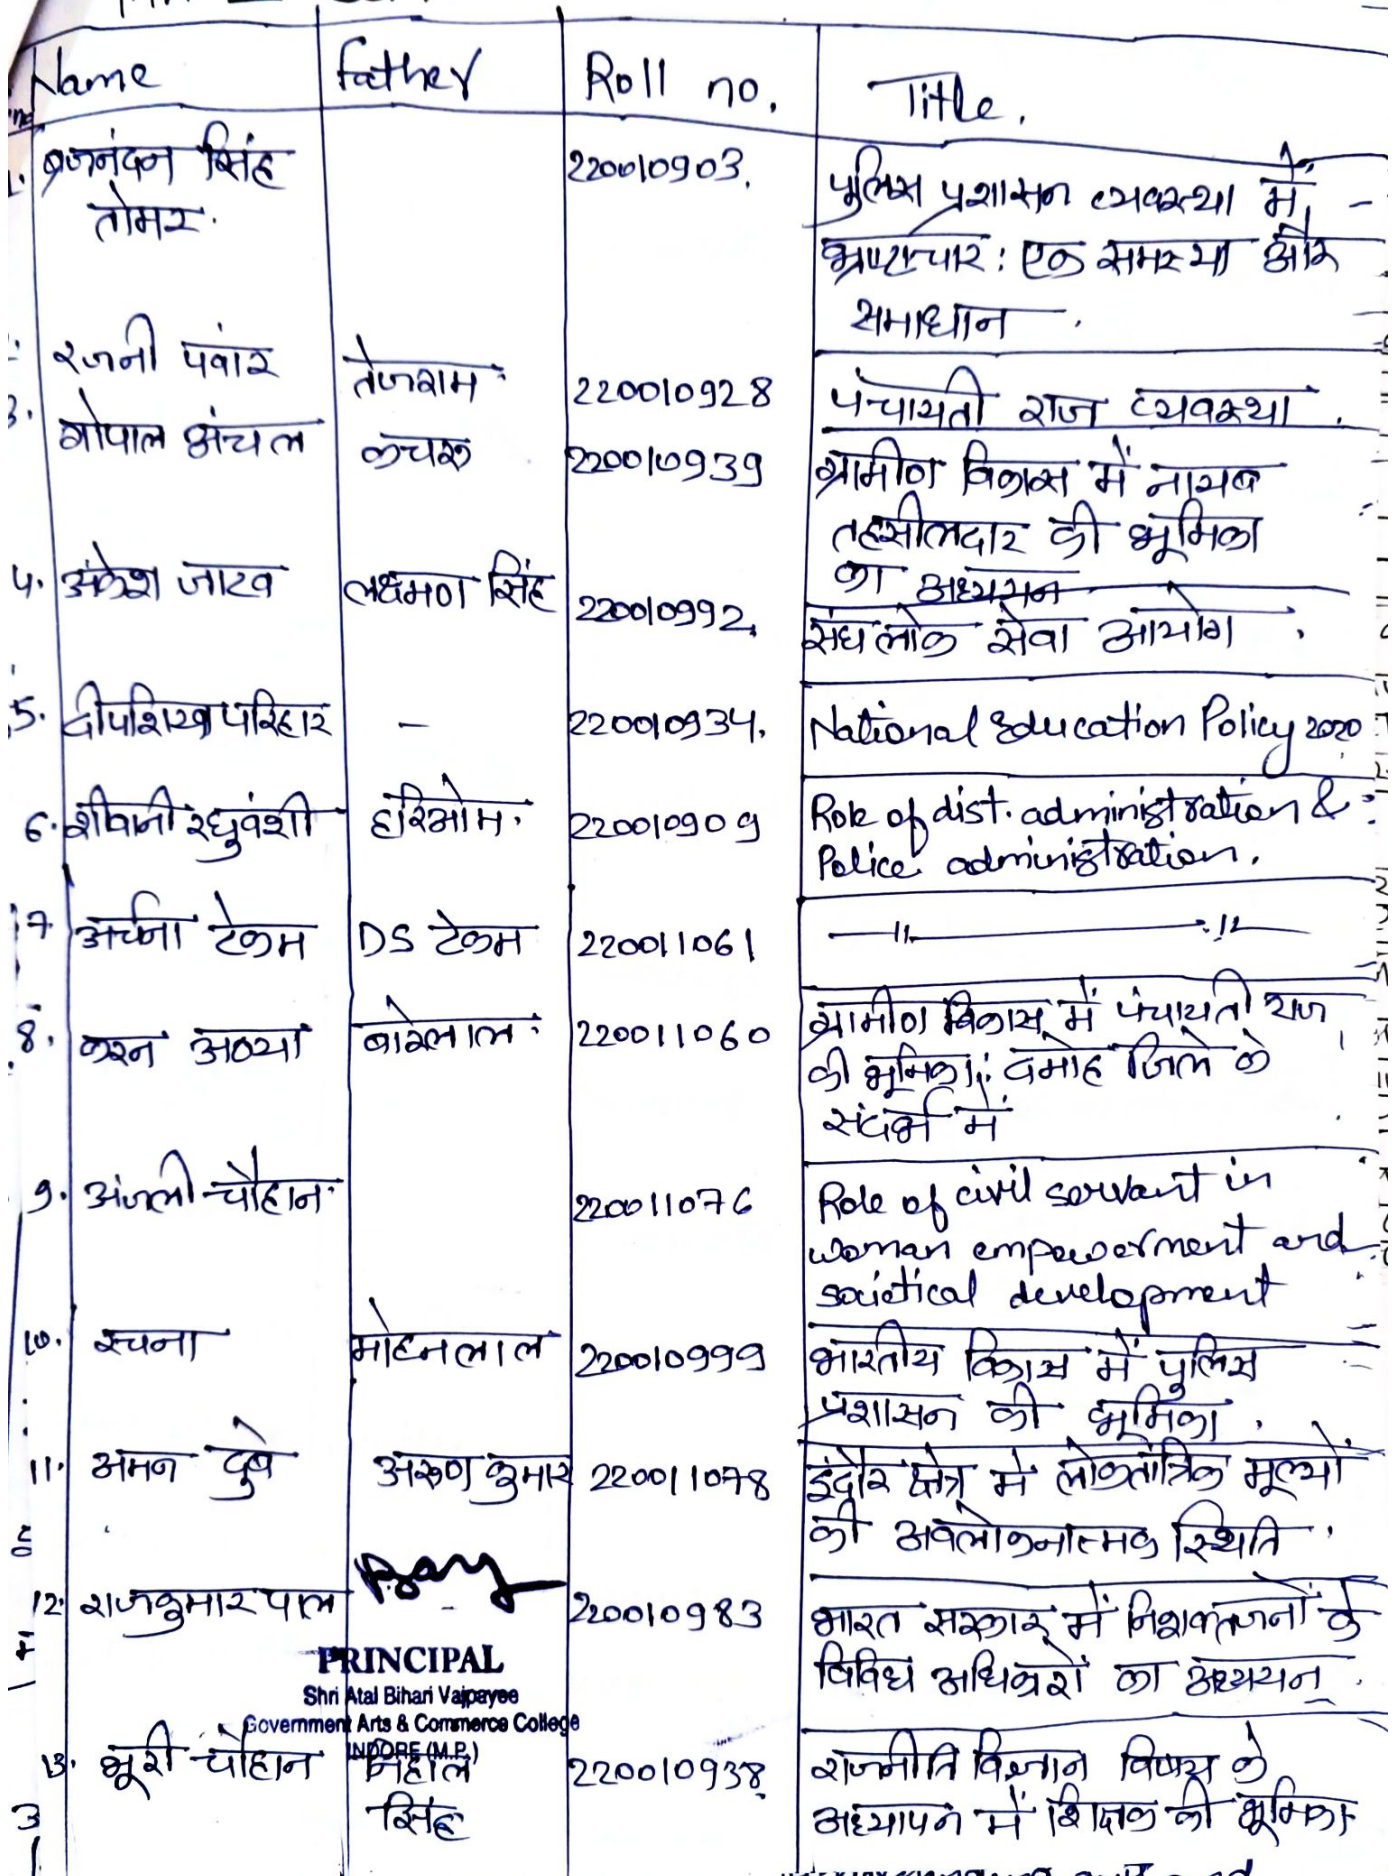 Name Father Roll no. Title.
1. ब्रजनंदन सिंह 220010903. पुलिस प्रशासन व्यवस्था में
तोमर. भ्रष्टाचार : एक समस्या और
समाधान .
रजनी पवांर तेजराम 220010928 पंचायती राज व्यवस्था .
3. गोपाल अंचल कचरू 220010939 ग्रामीण विकास में नायब
तहसीलदार की भूमिका
का अध्ययन
4. अंकेश जाटव लक्ष्मण सिंह 220010992. संघ लोक सेवा आयोग .
5. दीपशिखा परिहार - 220010934. National Education Policy 2020
6. शीवानी रघुवंशी हरिओम. 220010909 Role of dist. administration &
Police administration.
7. अर्चना टेकाम DS टेकाम 220011061 —11——11—
8. करन अठया बारेलाल 220011060 ग्रामीण विकास में पंचायती राज
की भूमिका : दमोह जिले के
संदर्भ में
9. अंजली चौहान 220011076 Role of civil servant in
woman empowerment and
societical development
10. रचना मोहनलाल 220010999 भारतीय विकास में पुलिस
प्रशासन की भूमिका .
11. अमन दुबे अरुण कुमार 220011078 इंदौर क्षेत्र में लोकतांत्रिक मूल्यों
की अवलोकनात्मक स्थिति .
12. राजकुमार पाल 220010983 भारत सरकार में निशक्तजनों के
विविध अधिकारों का अध्ययन .
PRINCIPAL
Shri Atal Bihari Vajpayee
Government Arts & Commerce College
INDORE (M.P.)
13. भूरी चौहान निहाल 220010938 राजनीति विज्ञान विषय के
सिंह अध्यापन में शिक्षक की भूमिका